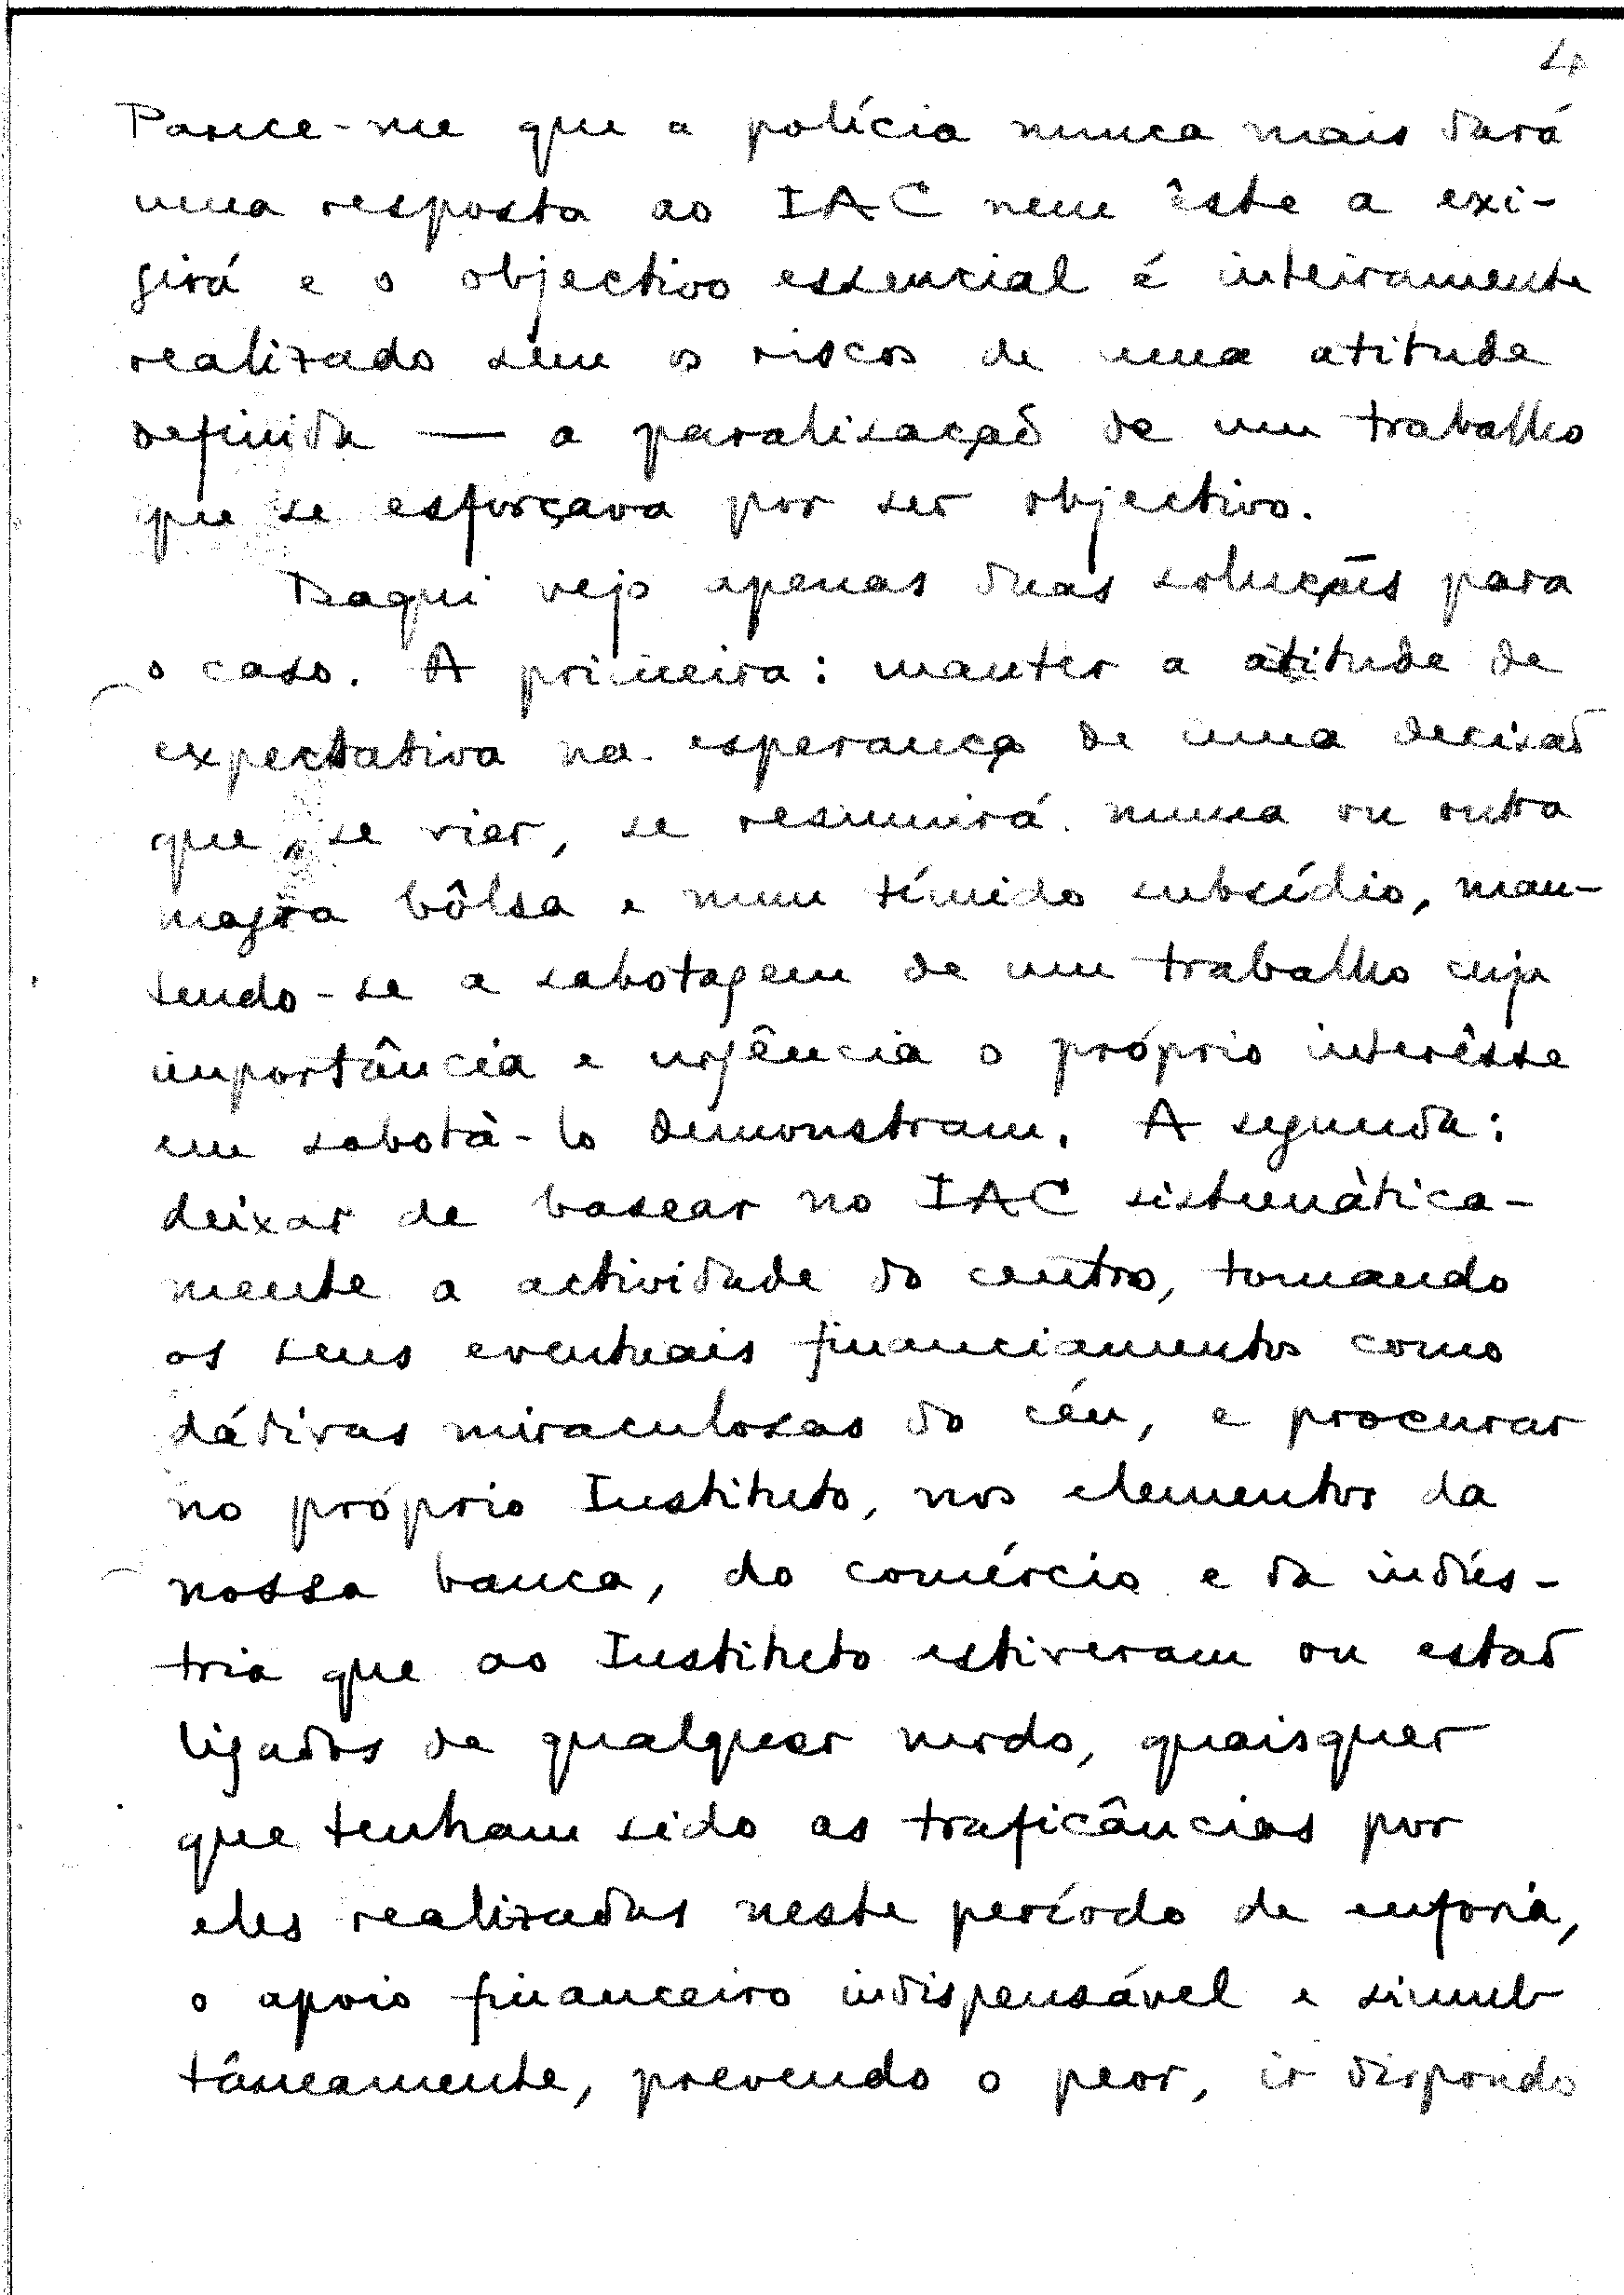 4
Parece-me que a polícia nunca mais dará
uma resposta ao IAC nem êste a exi-
girá e o objectivo essencial é inteiramente
realizado sem os riscos de uma atitude
definida — a paralisação de um trabalho
que se esforçava por ser objectivo.
Daqui vejo apenas duas soluções para
o caso. A primeira: manter a atitude de
expectativa na esperança de uma decisão
que, se vier, se resumirá numa ou outra
magra bôlsa e num tímido subsídio, man-
tendo-se a sabotagem de um trabalho cuja
importância e urgência o próprio interêsse
em sabotà-lo demonstram. A segunda:
deixar de basear no IAC sistemàtica-
mente a actividade do centro, tomando
os seus eventuais financiamentos como
dádivas miraculosas do céu, e procurar
no próprio Instituto, nos elementos da
nossa banca, do comércio e da indús-
tria que ao Instituto estiveram ou estão
ligados de qualquer modo, quaisquer
que tenham sido as traficâncias por
eles realizadas neste período de euforia,
o apoio financeiro indispensável e simul-
tâneamente, prevendo o peor, ir dispondo